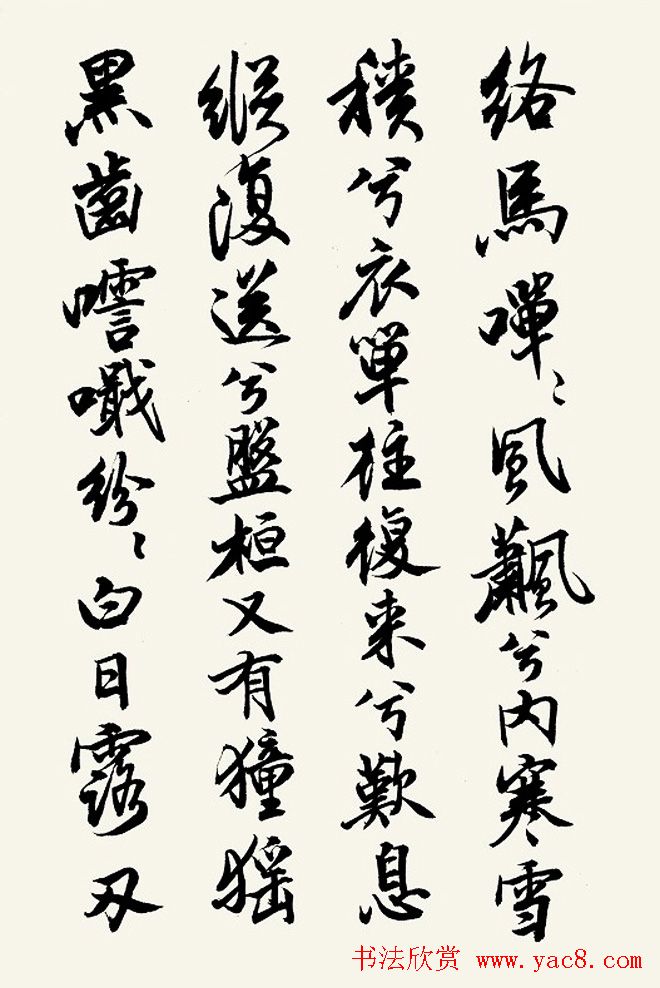 絡馬嘽〻風飆兮内寒雪
積兮衣單往復来兮歎息
縱復送兮盤桓又有獞猺
黑齒嚆嚱紛〻白日露刃
书法欣赏 www.yac8.com